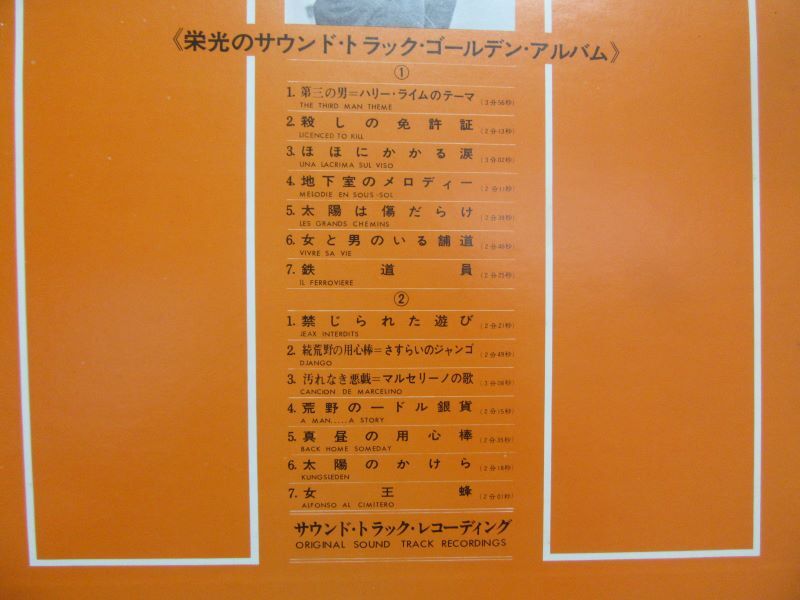 《栄光のサウンド・トラック・ゴールデン・アルバム》
①
1. 第三の男＝ハリー・ライムのテーマ (3分56秒)
THE THIRD MAN THEME
2. 殺しの免許証 (2分13秒)
LICENCED TO KILL
3. ほほにかかる涙 (3分02秒)
UNA LACRIMA SUL VISO
4. 地下室のメロディー (2分11秒)
MELODIE EN SOUS-SOL
5. 太陽は傷だらけ (2分39秒)
LES GRANDS CHEMINS
6. 女と男のいる舗道 (2分40秒)
VIVRE SA VIE
7. 鉄道員 (2分25秒)
IL FERROVIERE
②
1. 禁じられた遊び (2分21秒)
JEAX INTERDITS
2. 続荒野の用心棒＝さすらいのジャンゴ (2分49秒)
DJANGO
3. 汚れなき悪戯＝マルセリーノの歌 (3分08秒)
CANCION DE MARCELINO
4. 荒野の一ドル銀貨 (2分15秒)
A MAN.....A STORY
5. 真昼の用心棒 (2分35秒)
BACK HOME SOMEDAY
6. 太陽のかけら (2分18秒)
KUNGSLEDEN
7. 女王蜂 (2分01秒)
ALFONSO AL CIMITERO
サウンド・トラック・レコーディング
ORIGINAL SOUND TRACK RECORDINGS